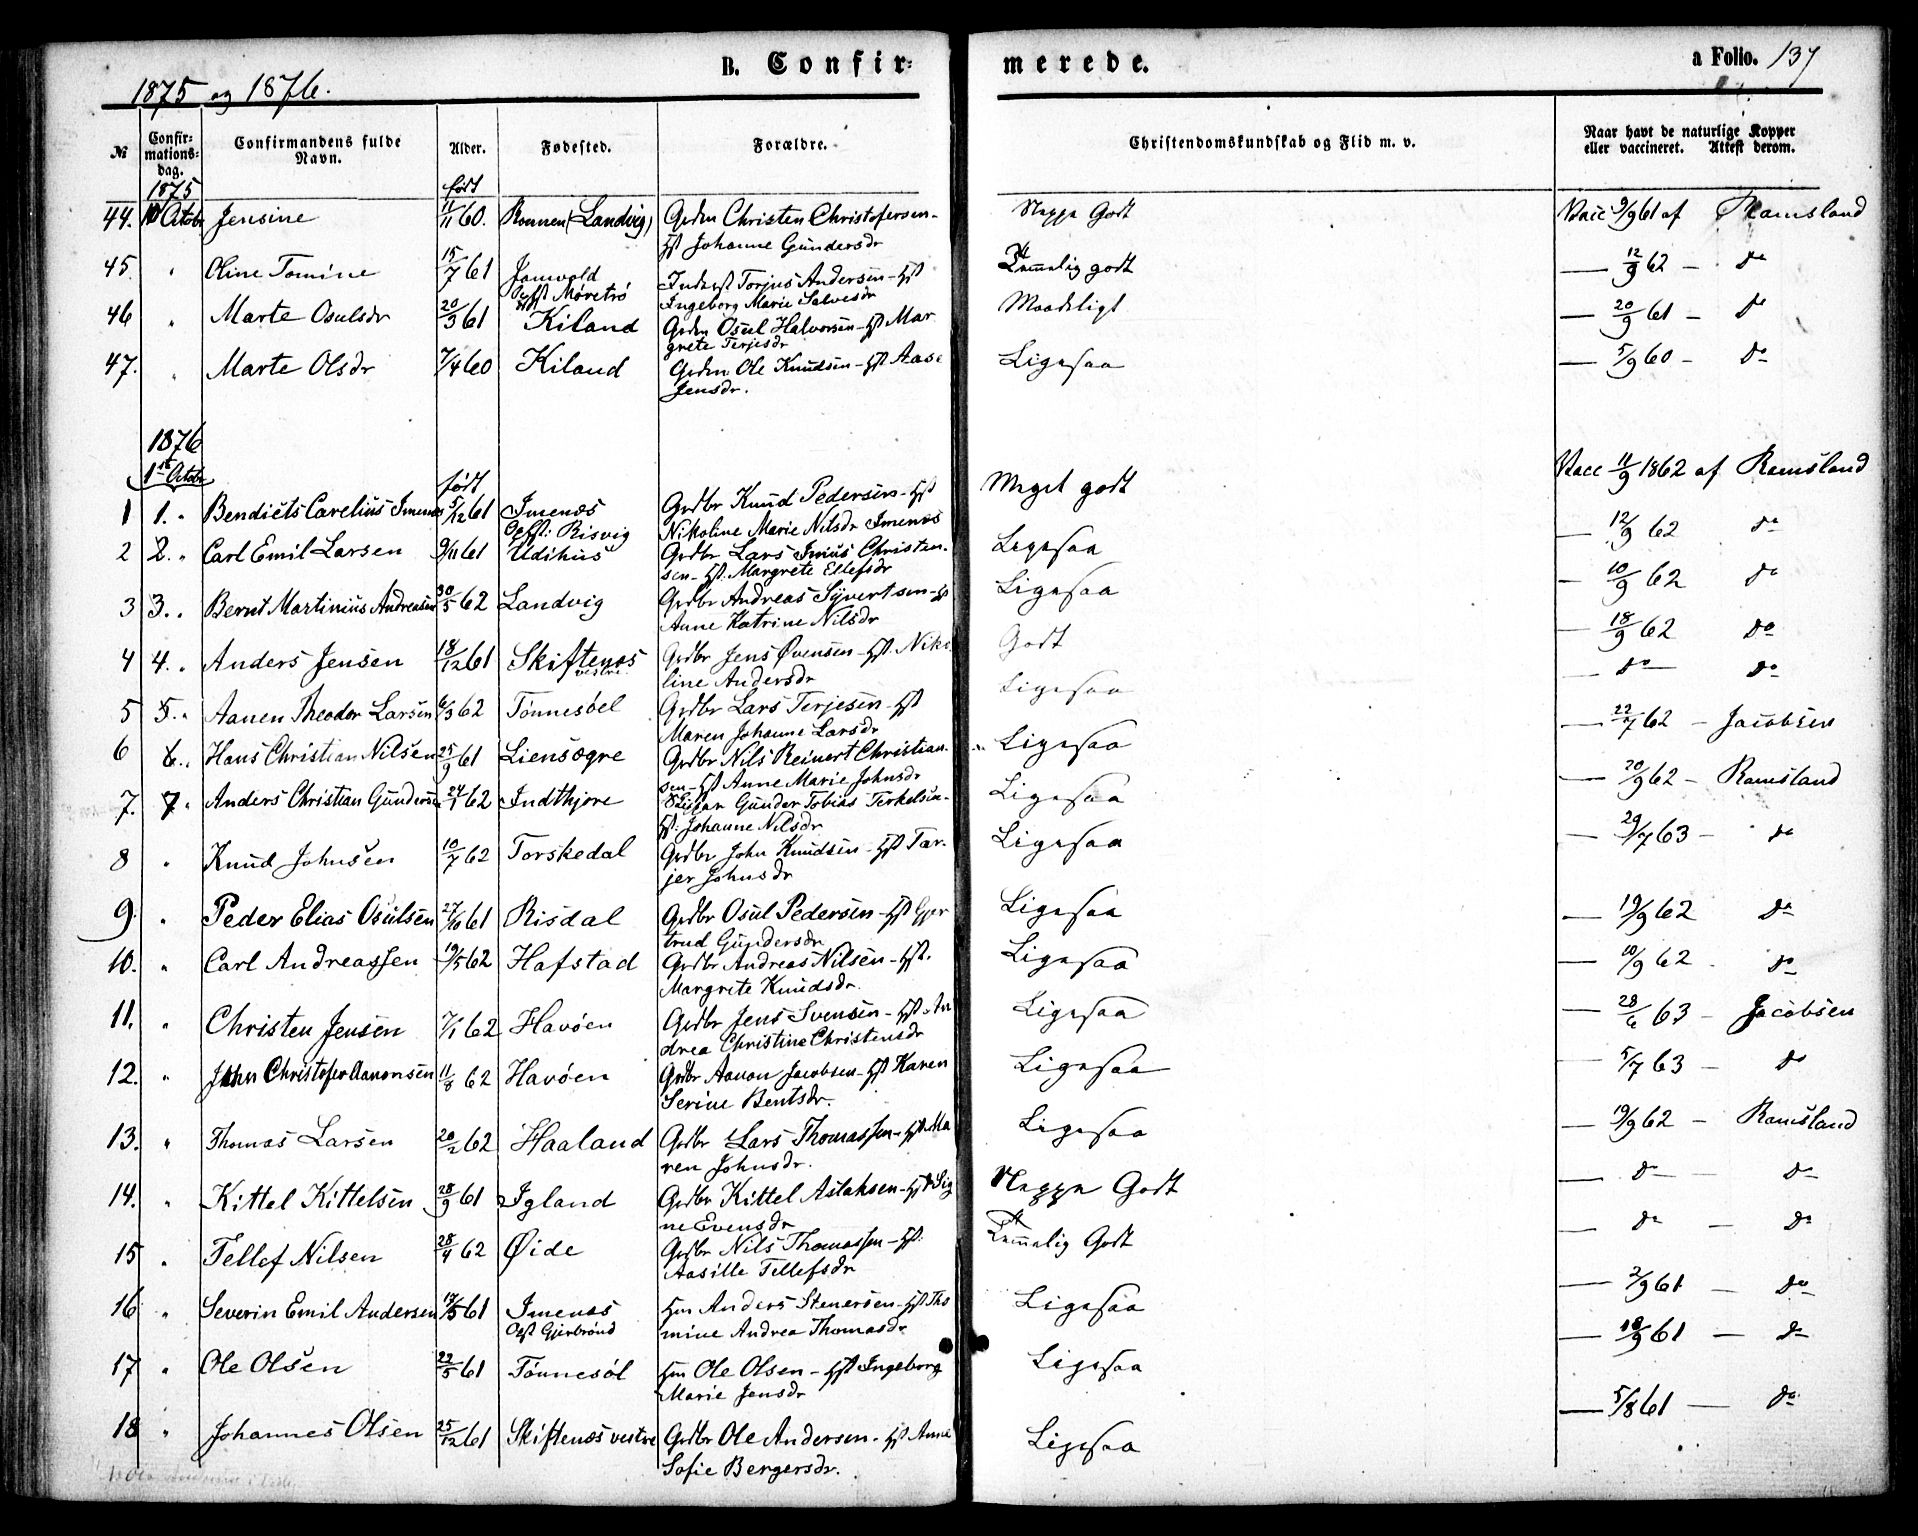 1875 og 1876.
B. Confir-
merede.
a Folio. 137
№
Confir-
mations-
dag.
Confirmandens fulde
Navn.
Alder.
Fødested.
Forældre.
Christendomskundskab og Flid m. v.
Naar havt de naturlige Kopper
eller vaccineret. Attest derom.
1875
født
44. Octobr Jensine 11/11 60. Ronnen (Landvig) Grdm Christen Christofersen - Neppe Godt Vacc 9/9 61 af Ramsland
Hst Johanne Gundersdr
45. " Oline Tomine 15/7 61 Jomvold Inderst Torjus Andersen - Hst Temmelig godt — 12/9 62 — do
Møretrø Ingeborg Marie Salvesdr
46 " Marte Osulsdr 20/3 61 Kiland Grdm Osul Halvorsen - Hst Mar Maadeligt — 20/9 61 — do
grete Terjesdr
47. " Marte Olsdr 7/4 60 Kiland Grdm Ole Knudsen - Hst Aase Ligesaa — 5/9 60 — do
Jensdr.
1876
1ste Octobr
født
1 1. " Bendicts Carelius Imenæs 5/12 61 Imenæs Grdbr Knud Pedersen - Hst Meget godt Vacc 11/9 1862 af Ramsland
Risvig Nikoline Marie Nilsdr Imenæs
2 2. " Carl Emil Larsen 9/11 61 Udihus Grdbr Lars Christen- Ligesaa — 12/9 62 do
sen - Hst. Margrete Ellefsdr
3 3. " Bernt Martinius Andreasen 30/5 62 Landvig Grdbr Andreas Syvertsen - Hst Ligesaa — 10/9 62 do
Anne Katrine Nilsdr
4 4. " Anders Jensen 18/12 61 Skiftenæs Grdbr Jens Øvensen - Hst Niko Godt — 18/9 62 do
vestre line Andersdr
5 5. " Aanen Theodor Larsen 6/3 62 Tønnesøl Grdbr Lars Terjesen - Hst Ligesaa — do — do
Maren Johanne Larsdr
6 6. " Hans Christian Nilsen 25/9 61 Liensøgre Grdbr Nils Reinert Christian- Ligesaa — 22/7 62 — Jacobsen
sen - Hst Anne Marie Johnsdr
7. 7 " Anders Christian Gundersen 24/1 62 Indthjore Gunder Tobias Terkelsen - Ligesaa — 20/9 62 — Ramsland
Hst: Johanne Nilsdr
8 " Knud Johnsen 10/7 62 Torskedal Grdbr John Knudsen - Hst Tar- Ligesaa — 29/7 63 — do
jer Johnsdr
9. " Peder Elias Osulsen 27/10 61 Risdal Grdbr Osul Pedersen - Hst Gjer Ligesaa — 19/9 62 do
trud Gundersdr
10. " Carl Andreassen 19/5 62 Hafstad Grdbr Andreas Nilsen - Hst. Ligesaa — 10/9 62 . do
Margrete Knudsdr.
11. " Christen Jensen 7/1 62 Havøen Grdbr Jens Svensen - Hst An Ligesaa — 28/6 63 — Jacobsen
drea Christine Christensdr
12. " John Christofer Aanonsen 11/8 62 Havøen Grdbr Aanon Jacobsen - Hst Karen Ligesaa — 5/7 63 — do
Serine Bentsdr.
13. " Thomas Larsen 20/2 62 Haaland Grdbr Lars Thomassen - Hst Ma Ligesaa — 19/9 62 — Ramsland
ren Johnsdr.
14. " Kittel Kittelsen 28/9 61 Igland Grdbr Kittel Aslaksen - Hst Sig Neppe Godt — do — do
ne Evensdr
15 " Tellef Nilsen 28/4 62 Øide Grdbr Nils Thomassen - Hst. Temmelig Godt — do — do
Aasille Tellefsdr
16 " Severin Emil Andersen 17/5 61 Imenæs Hm Anders Stenersen - Hst Tho Ligesaa — 2/9 61 — do
Gjerbrønd mine Andrea Thomasdr
17 " Ole Olsen 22/5 61 Tønnesøl Hm Ole Olsen - Hst Ingeborg Ligesaa — 18/9 61 — do
Marie Jensdr
18 " Johannes Olsen 25/12 61 Skiftenæs vestre Grdbr Ole Andersen - Hst Anne Ligesaa — 5/8 61 — do
Sofie Bergersdr.